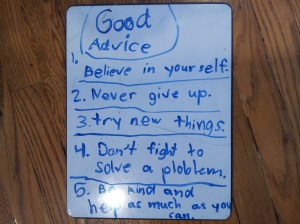 Good
Advice
1. Believe in yourself.
2. Never give up.
3. try new things.
4. Don't fight to
solve a ploblem.
5. Be kind and
help as much as you
can.